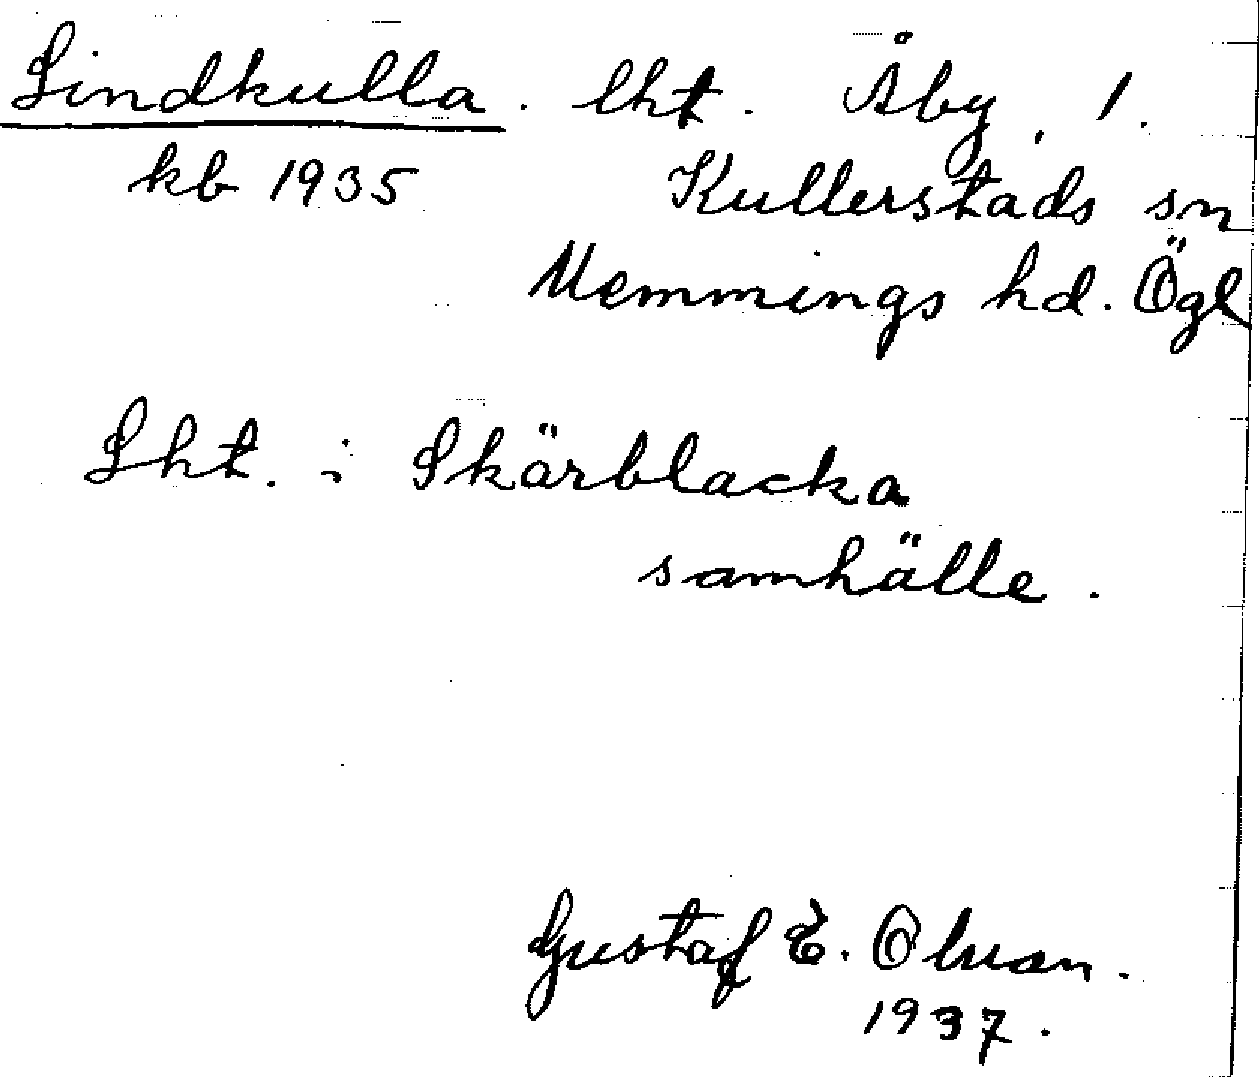 Lindkulla. lht. Åby. 1.
kb 1935 Kullerstads sn
Memmings hd. Ögl
Lht. i Skärblacka
samhälle.
Gustaf E.
1937.